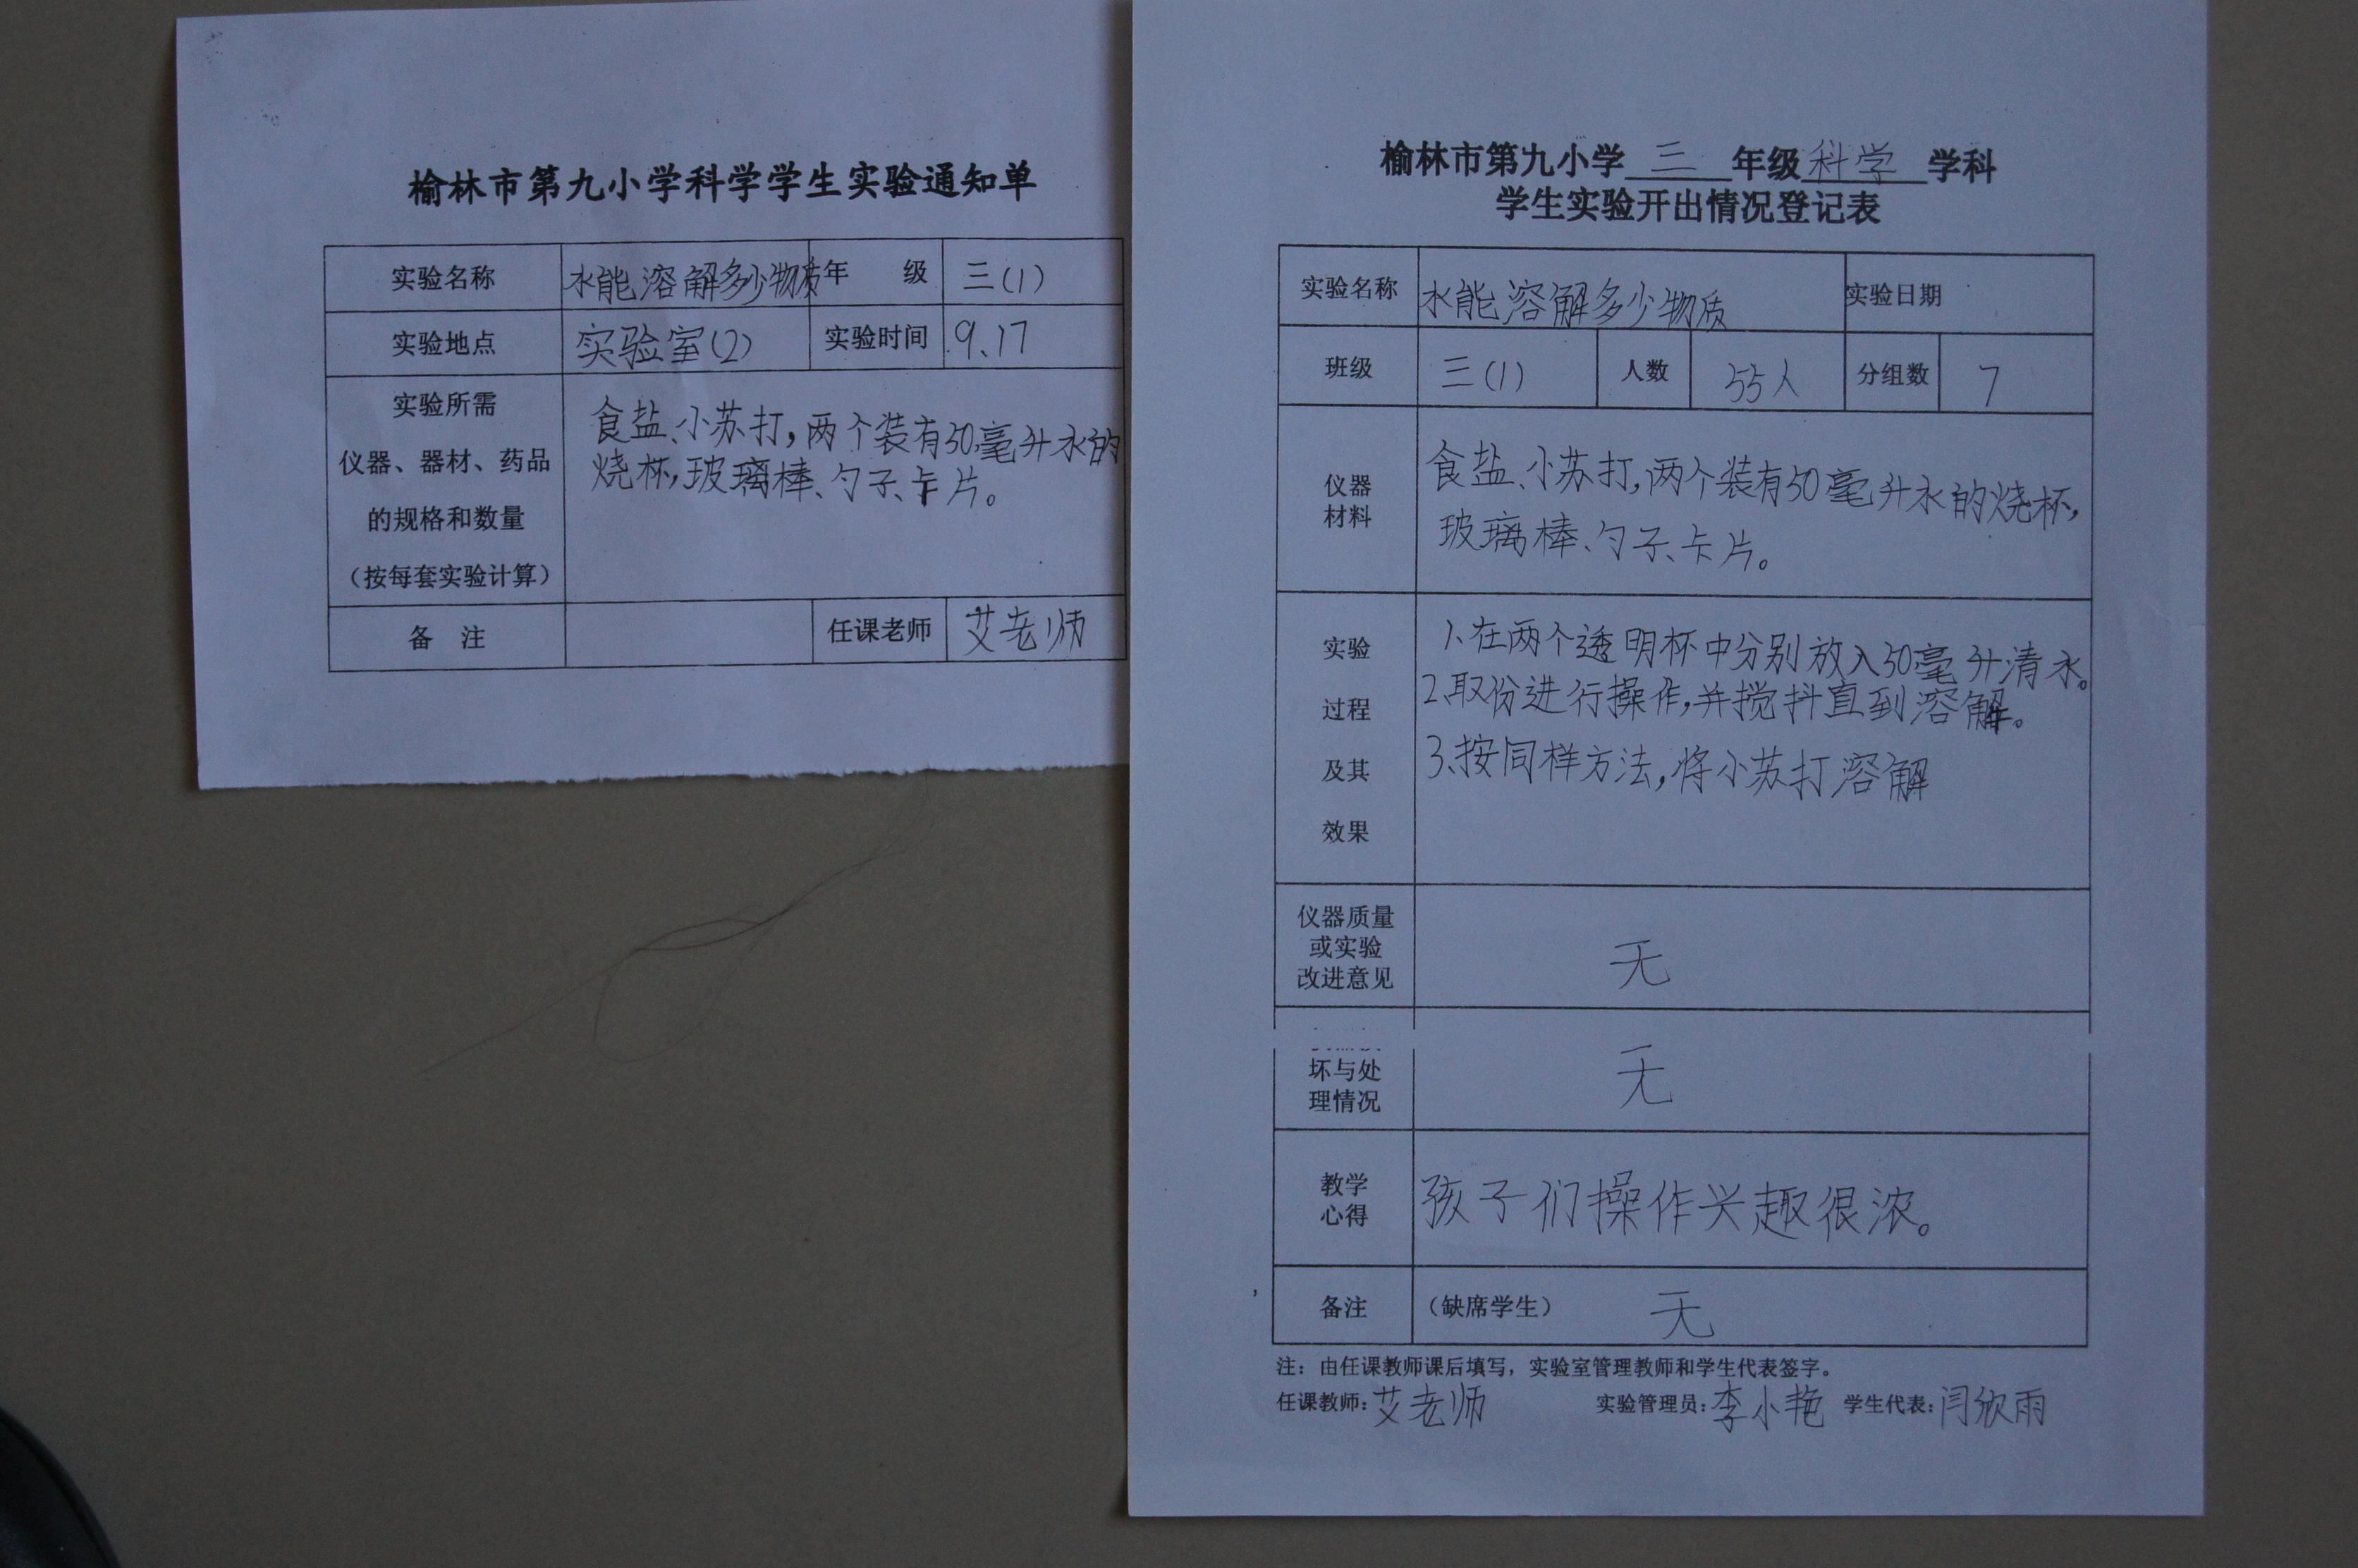 榆林市第九小学科学学生实验通知单
实验名称 水能溶解多少物质 年 级 三(1)
实验地点 实验室(2) 实验时间 9.17
实验所需
仪器、器材、药品
的规格和数量
（按每套实验计算）
食盐、小苏打,两个装有50毫升水的
烧杯,玻璃棒、勺子、卡片。
备 注 任课老师 艾老师
榆林市第九小学 三 年级 科学 学科
学生实验开出情况登记表
实验名称 水能溶解多少物质 实验日期
班级 三(1) 人数 55人 分组数 7
仪器
材料
食盐、小苏打,两个装有50毫升水的烧杯,
玻璃棒、勺子、卡片。
实验
过程
及其
效果
1.在两个透明杯中分别放入50毫升清水。
2.取份进行操作,并搅抖直到溶解。
3.按同样方法,将小苏打溶解
仪器质量
或实验
改进意见
无
坏与处
理情况
无
教学
心得
孩子们操作兴趣很浓。
备注 （缺席学生） 无
注：由任课教师课后填写，实验室管理教师和学生代表签字。
任课教师：艾老师 实验管理员：李小艳 学生代表：闫欣雨